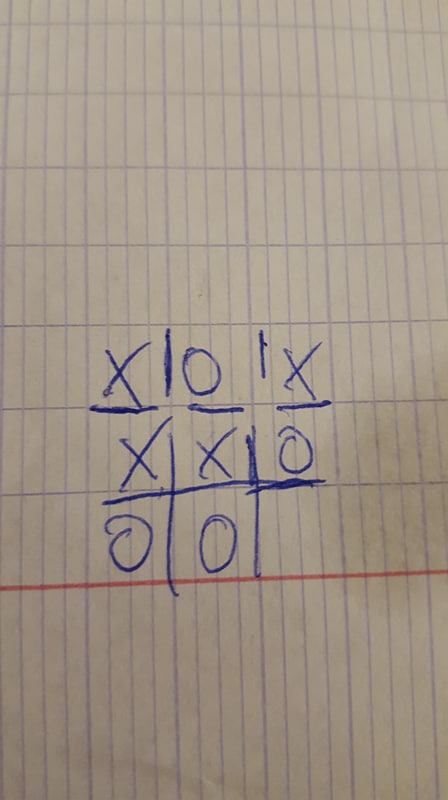 X|O|X
X|X|O
O|O|